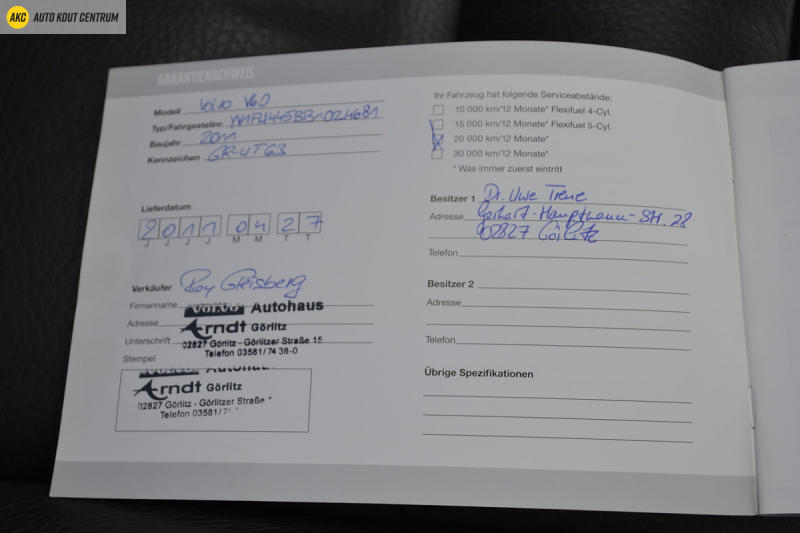 AKC AUTO KOUT CENTRUM
GARANTIENACHWEIS
Modell Volvo V60
Typ/Fahrgestellnr.
Baujahr 2011
Kennzeichen GR-UT63
Lieferdatum
2 0 1 1 0 4 2 7
J J J J M M T T
Verkäufer Roy Gleisberg
Firmenname VOLVO Autohaus
Adresse Arndt Görlitz
Unterschrift 02827 Görlitz - Görlitzer Straße 15
Telefon 03581/74 38-0
Stempel
Arndt Görlitz
02827 Görlitz - Görlitzer Straße
Telefon 03581/7
Ihr Fahrzeug hat folgende Serviceabstände:
10 000 km/12 Monate* Flexifuel 4-Cyl.
15 000 km/12 Monate* Flexifuel 5-Cyl.
20 000 km/12 Monate*
30 000 km/12 Monate*
* Was immer zuerst eintritt
Besitzer 1 Dr. Uwe
Adresse Gerhart-Hauptmann-Str. 28
02827 Görlitz
Telefon
Besitzer 2
Adresse
Telefon
Übrige Spezifikationen